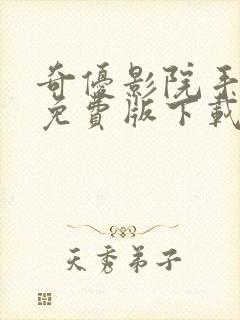 奇優影院手
免費版下載
天秀弟子